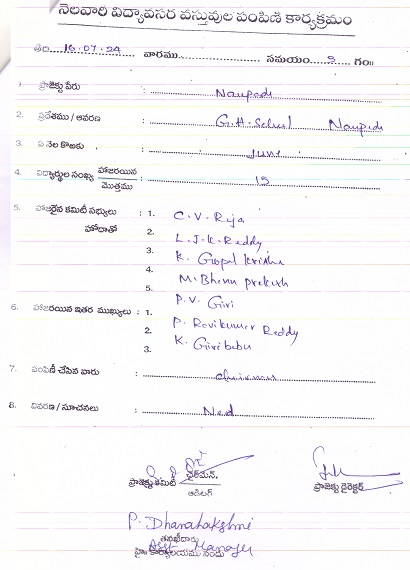 నెలవారి విద్యావసర వస్తువుల పంపిణీ కార్యక్రమం
తేది...16.07.24 వారము............ సమయం...5...గం॥
1. ప్రాజెక్టు పేరు : Naupada
2. ప్రదేశము / ఆవరణ : G.H. School Naupada
3. ఏ నెల కొఱకు : June
4. విద్యార్థుల సంఖ్య హాజరయిన / మొత్తము : 15
5. హాజరైన కమిటీ సభ్యులు : 1. C.V. Raja
హోదాతో 2. L.J.K. Reddy
3. K. Gopal Krishna
4. M. Bhanu Prakash
5. P.V. Giri
6. హాజరయిన ఇతర ముఖ్యులు : 1.
2. P. Ravikumar Reddy
3. K. Giribabu
7. పంపిణీ చేసిన వారు : chairman
8. వివరణ / సూచనలు : Ned
ప్రాజెక్టు కమిటీ ఛైర్మన్.
ఆడిటర్
ప్రాజెక్టు డైరెక్టర్
P. Dhanalakshmi
తనఖీదారు
Asst Manager
హై. కార్యాలయము నందు